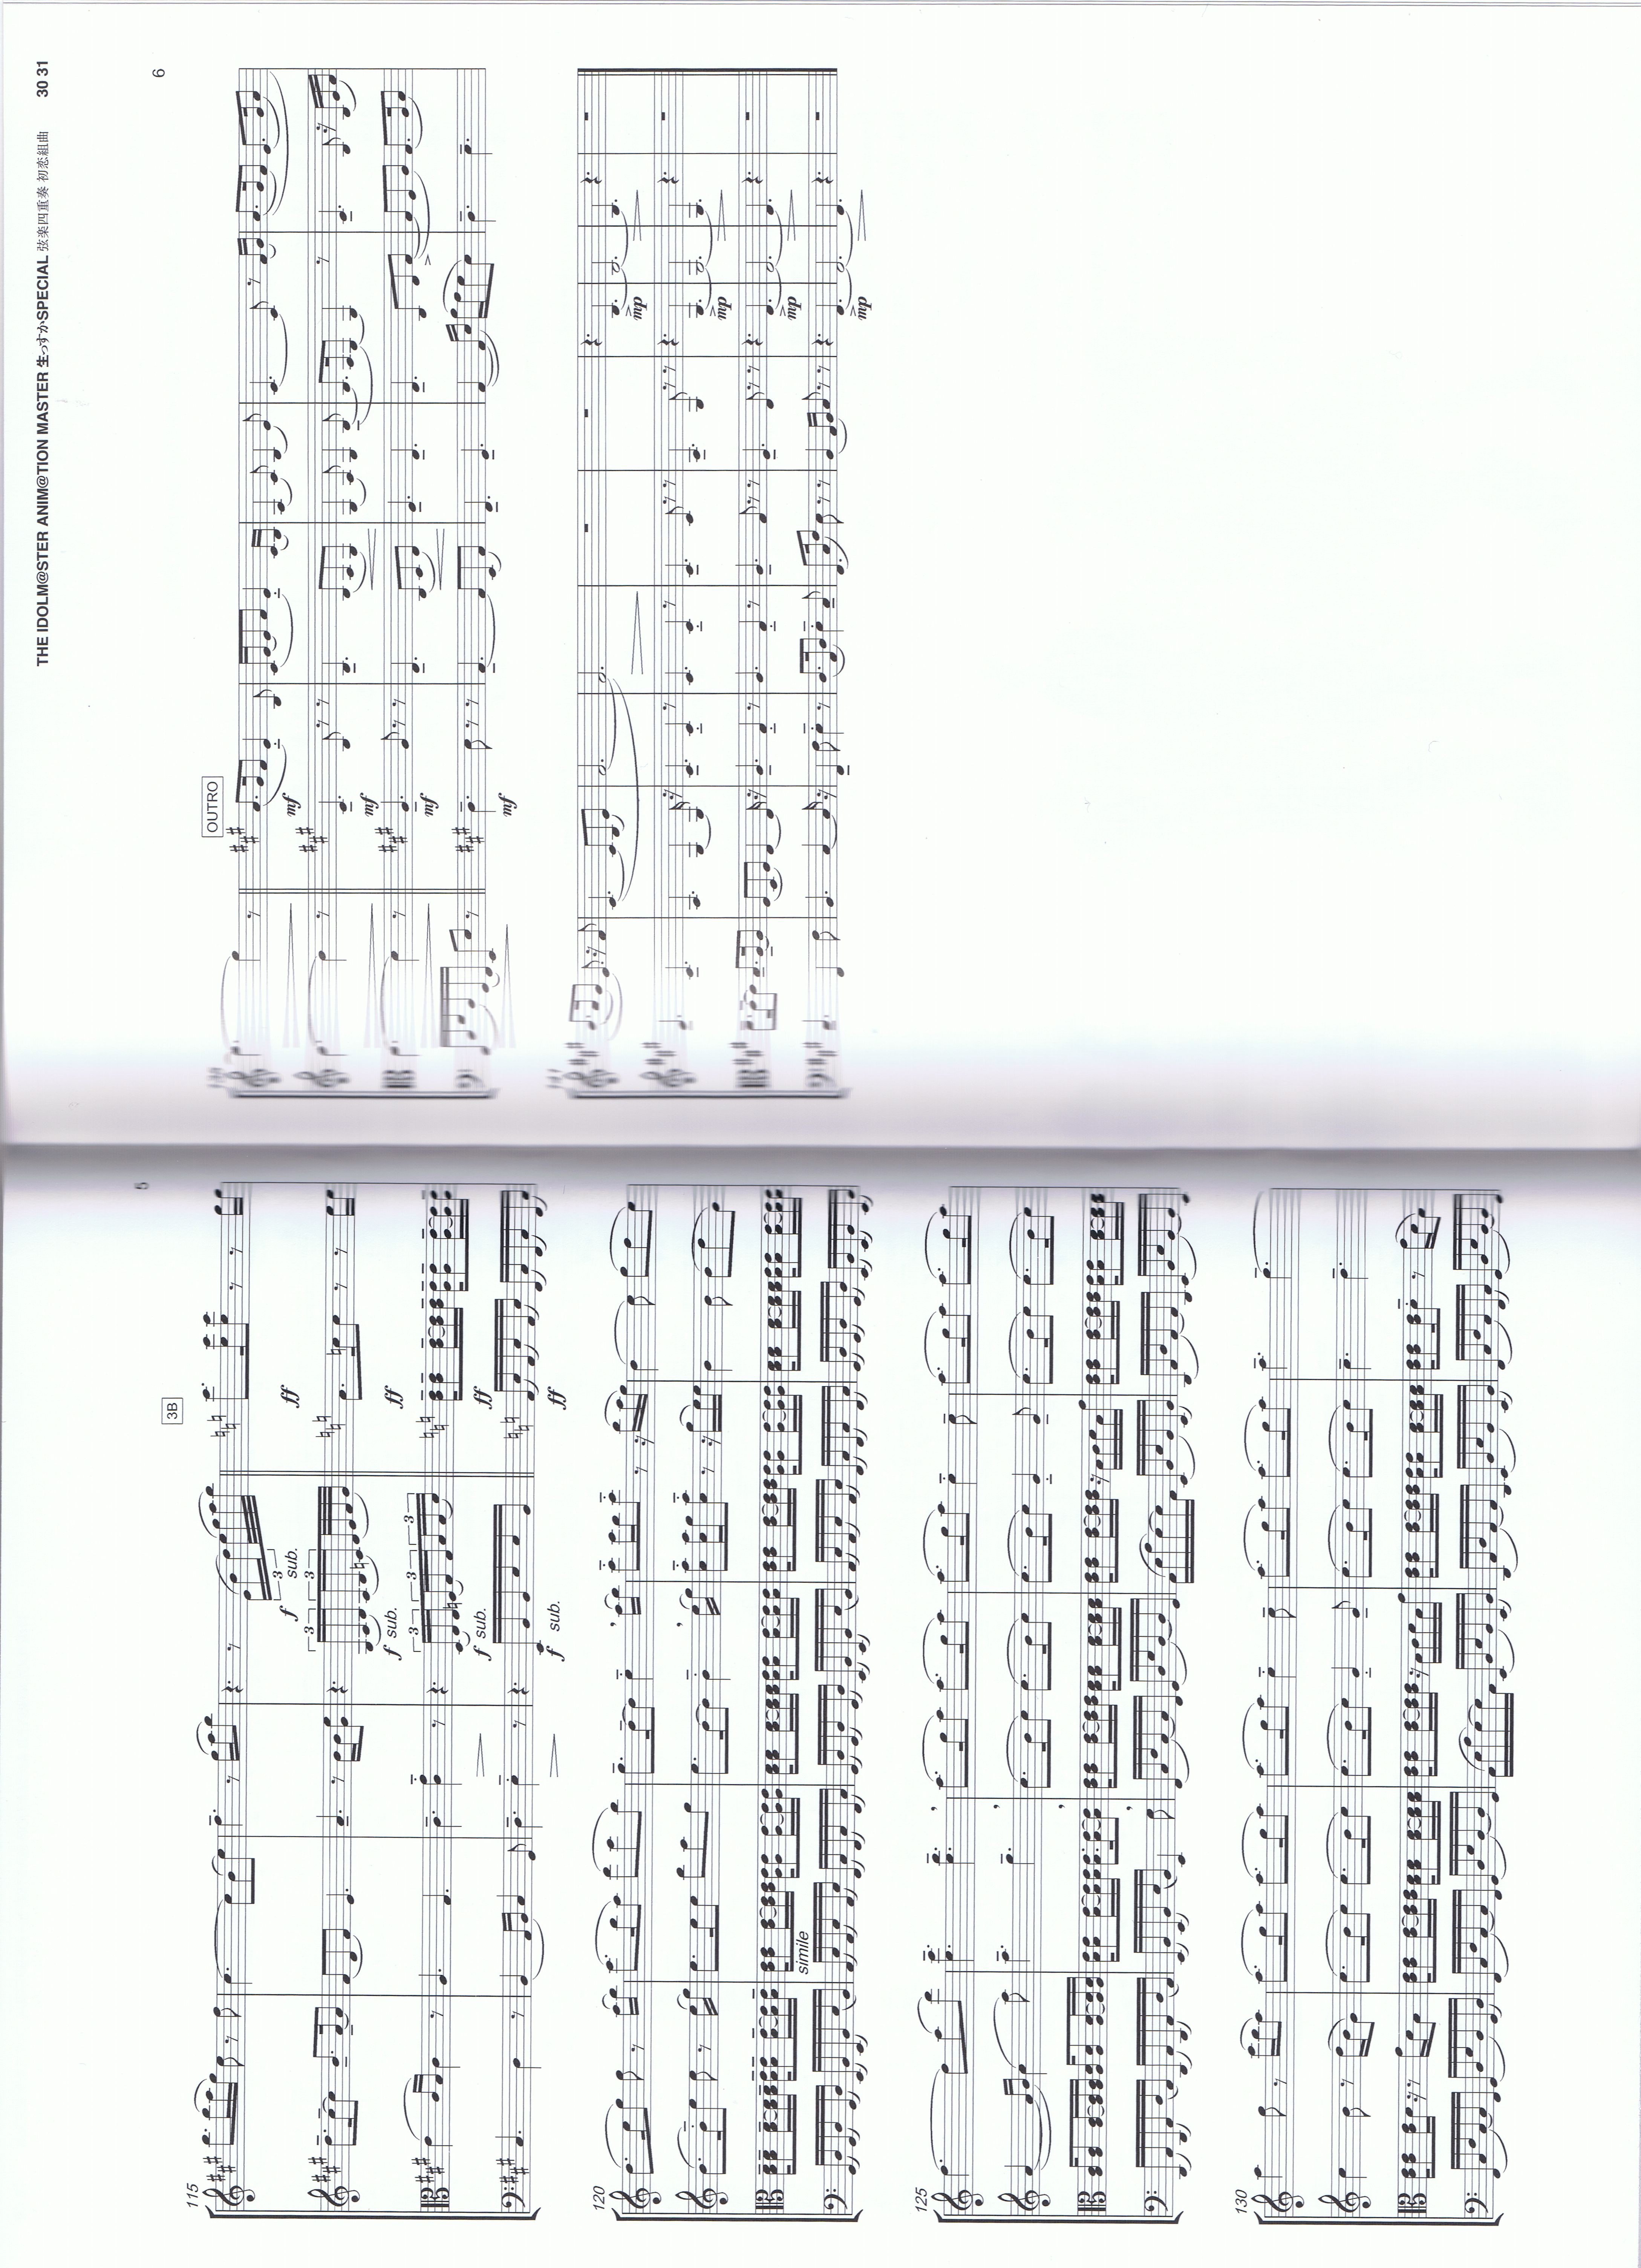 THE IDOLM@STER ANIM@TION MASTER 生っすかSPECIAL 弦楽四重奏 初恋組曲 30 31
5
115
3B
3 3 sub.
f
ff
3 3 3
f sub.
ff
3 3 3
f sub.
ff
f sub.
ff
120
simile
125
130
6
OUTRO
mf
mf
mf
mf
mp
mp
mp
mp